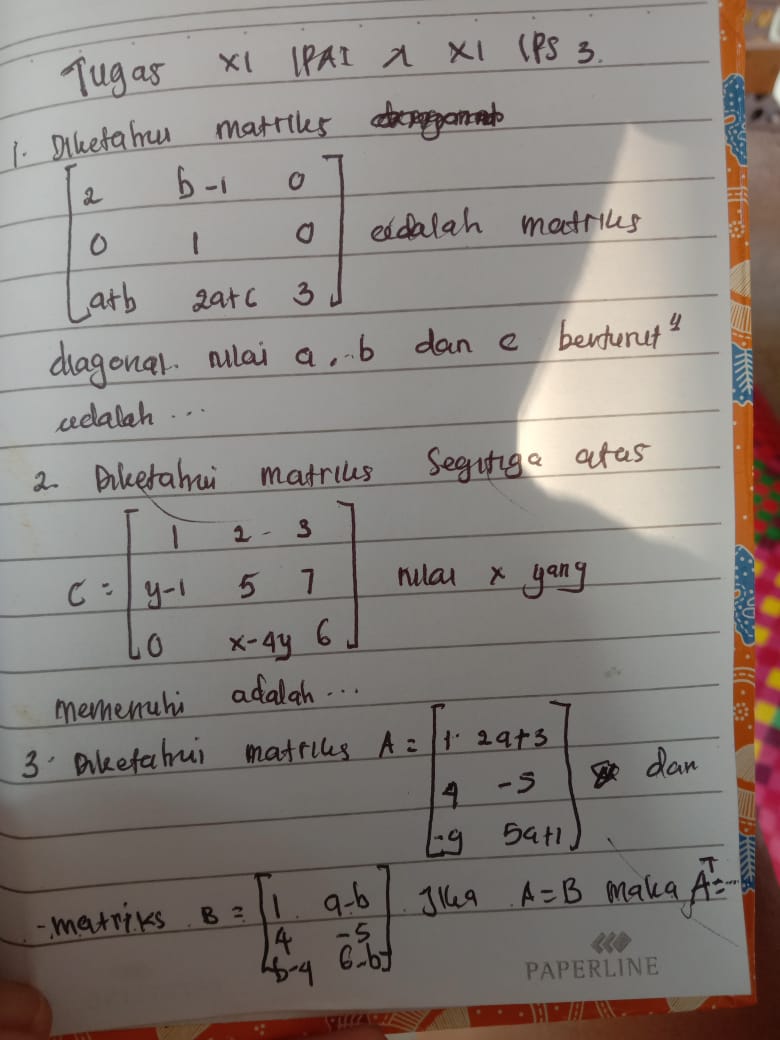 Tugas XI IPA1 & XI IPS 3.
1. Diketahui matriks
[2 b-1 0
0 1 0
a+b 2a+c 3] adalah matriks
diagonal. nilai a, b dan c berturut"
adalah ...
2. Diketahui matriks Segitiga atas
C = [1 2 3
y-1 5 7
0 x-4y 6] nilai x yang
memenuhi adalah ...
3. Diketahui matriks A = [1 2a+3
4 -5
-9 5a+1] dan
- matriks B = [1 a-b
4 -5
b-4 6-b] Jika A = B maka Aᵀ = ...
PAPERLINE